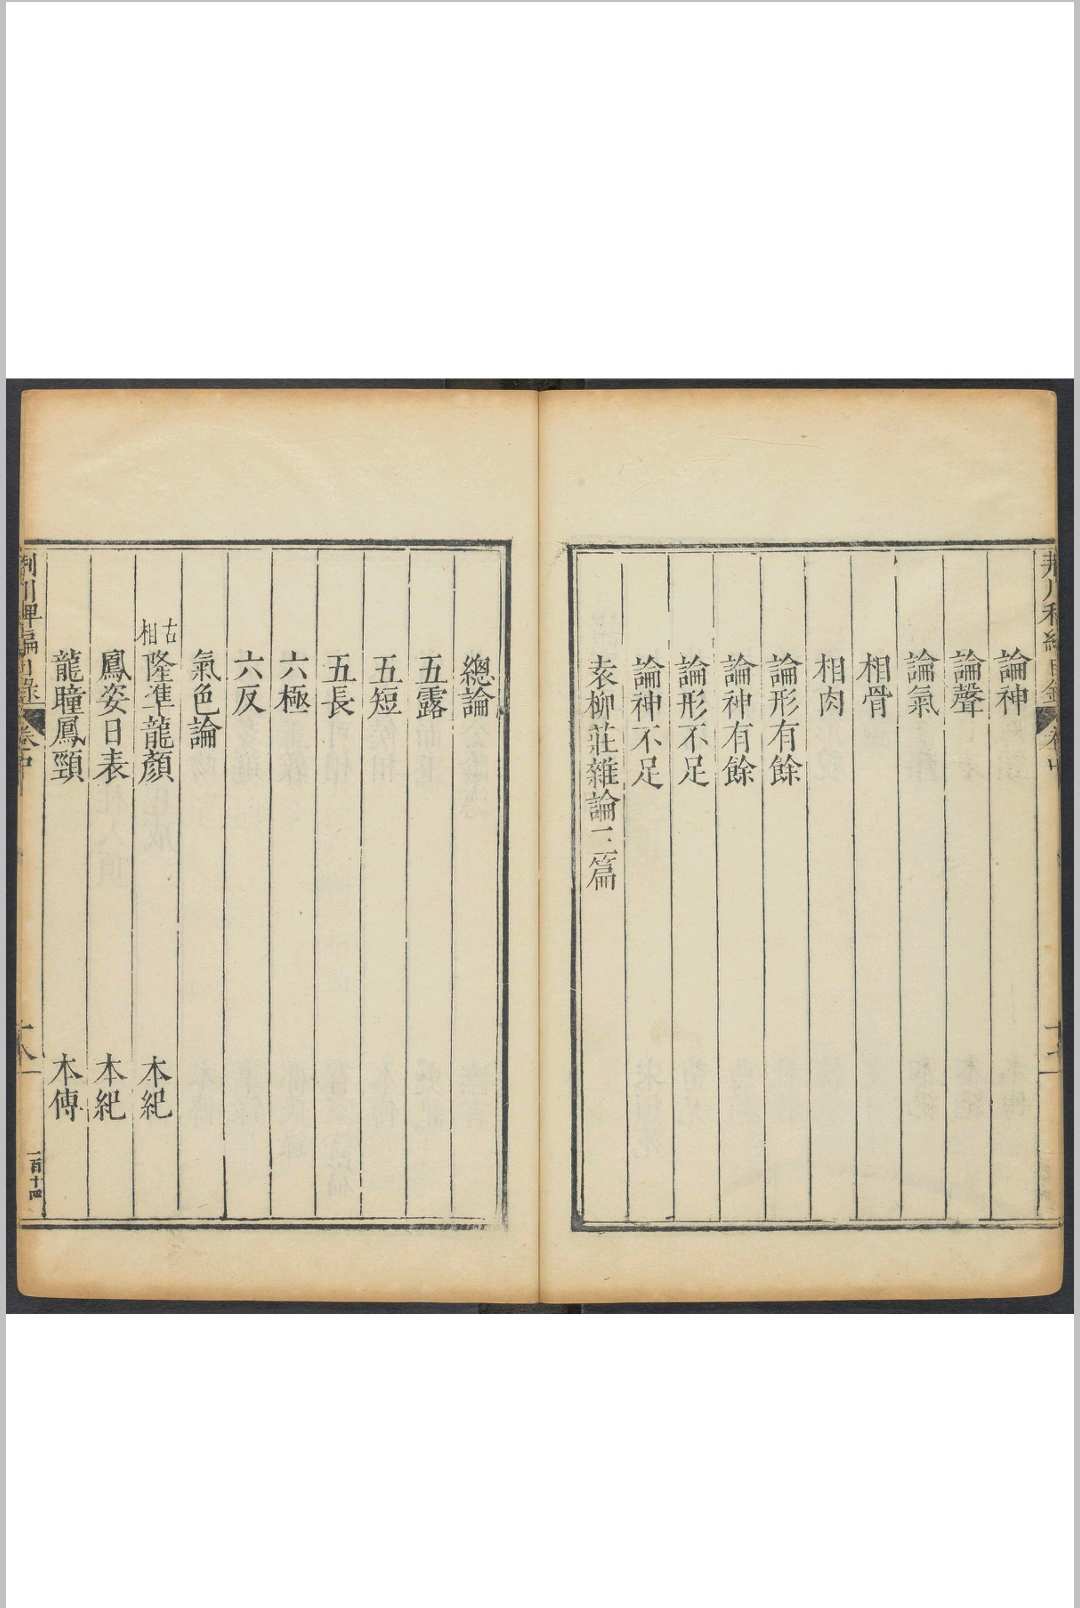 論神
論聲
論氣
相骨
相肉
論形有餘
論神有餘
論形不足
論神不足
袁柳莊雜論三篇
總論
五露
五短
五長
六極
六反
氣色論
古相 隆準龍顏 本紀
鳳姿日表 本紀
龍瞳鳳頸 本傳
荊川稗編目錄 卷中 十八 一百十四